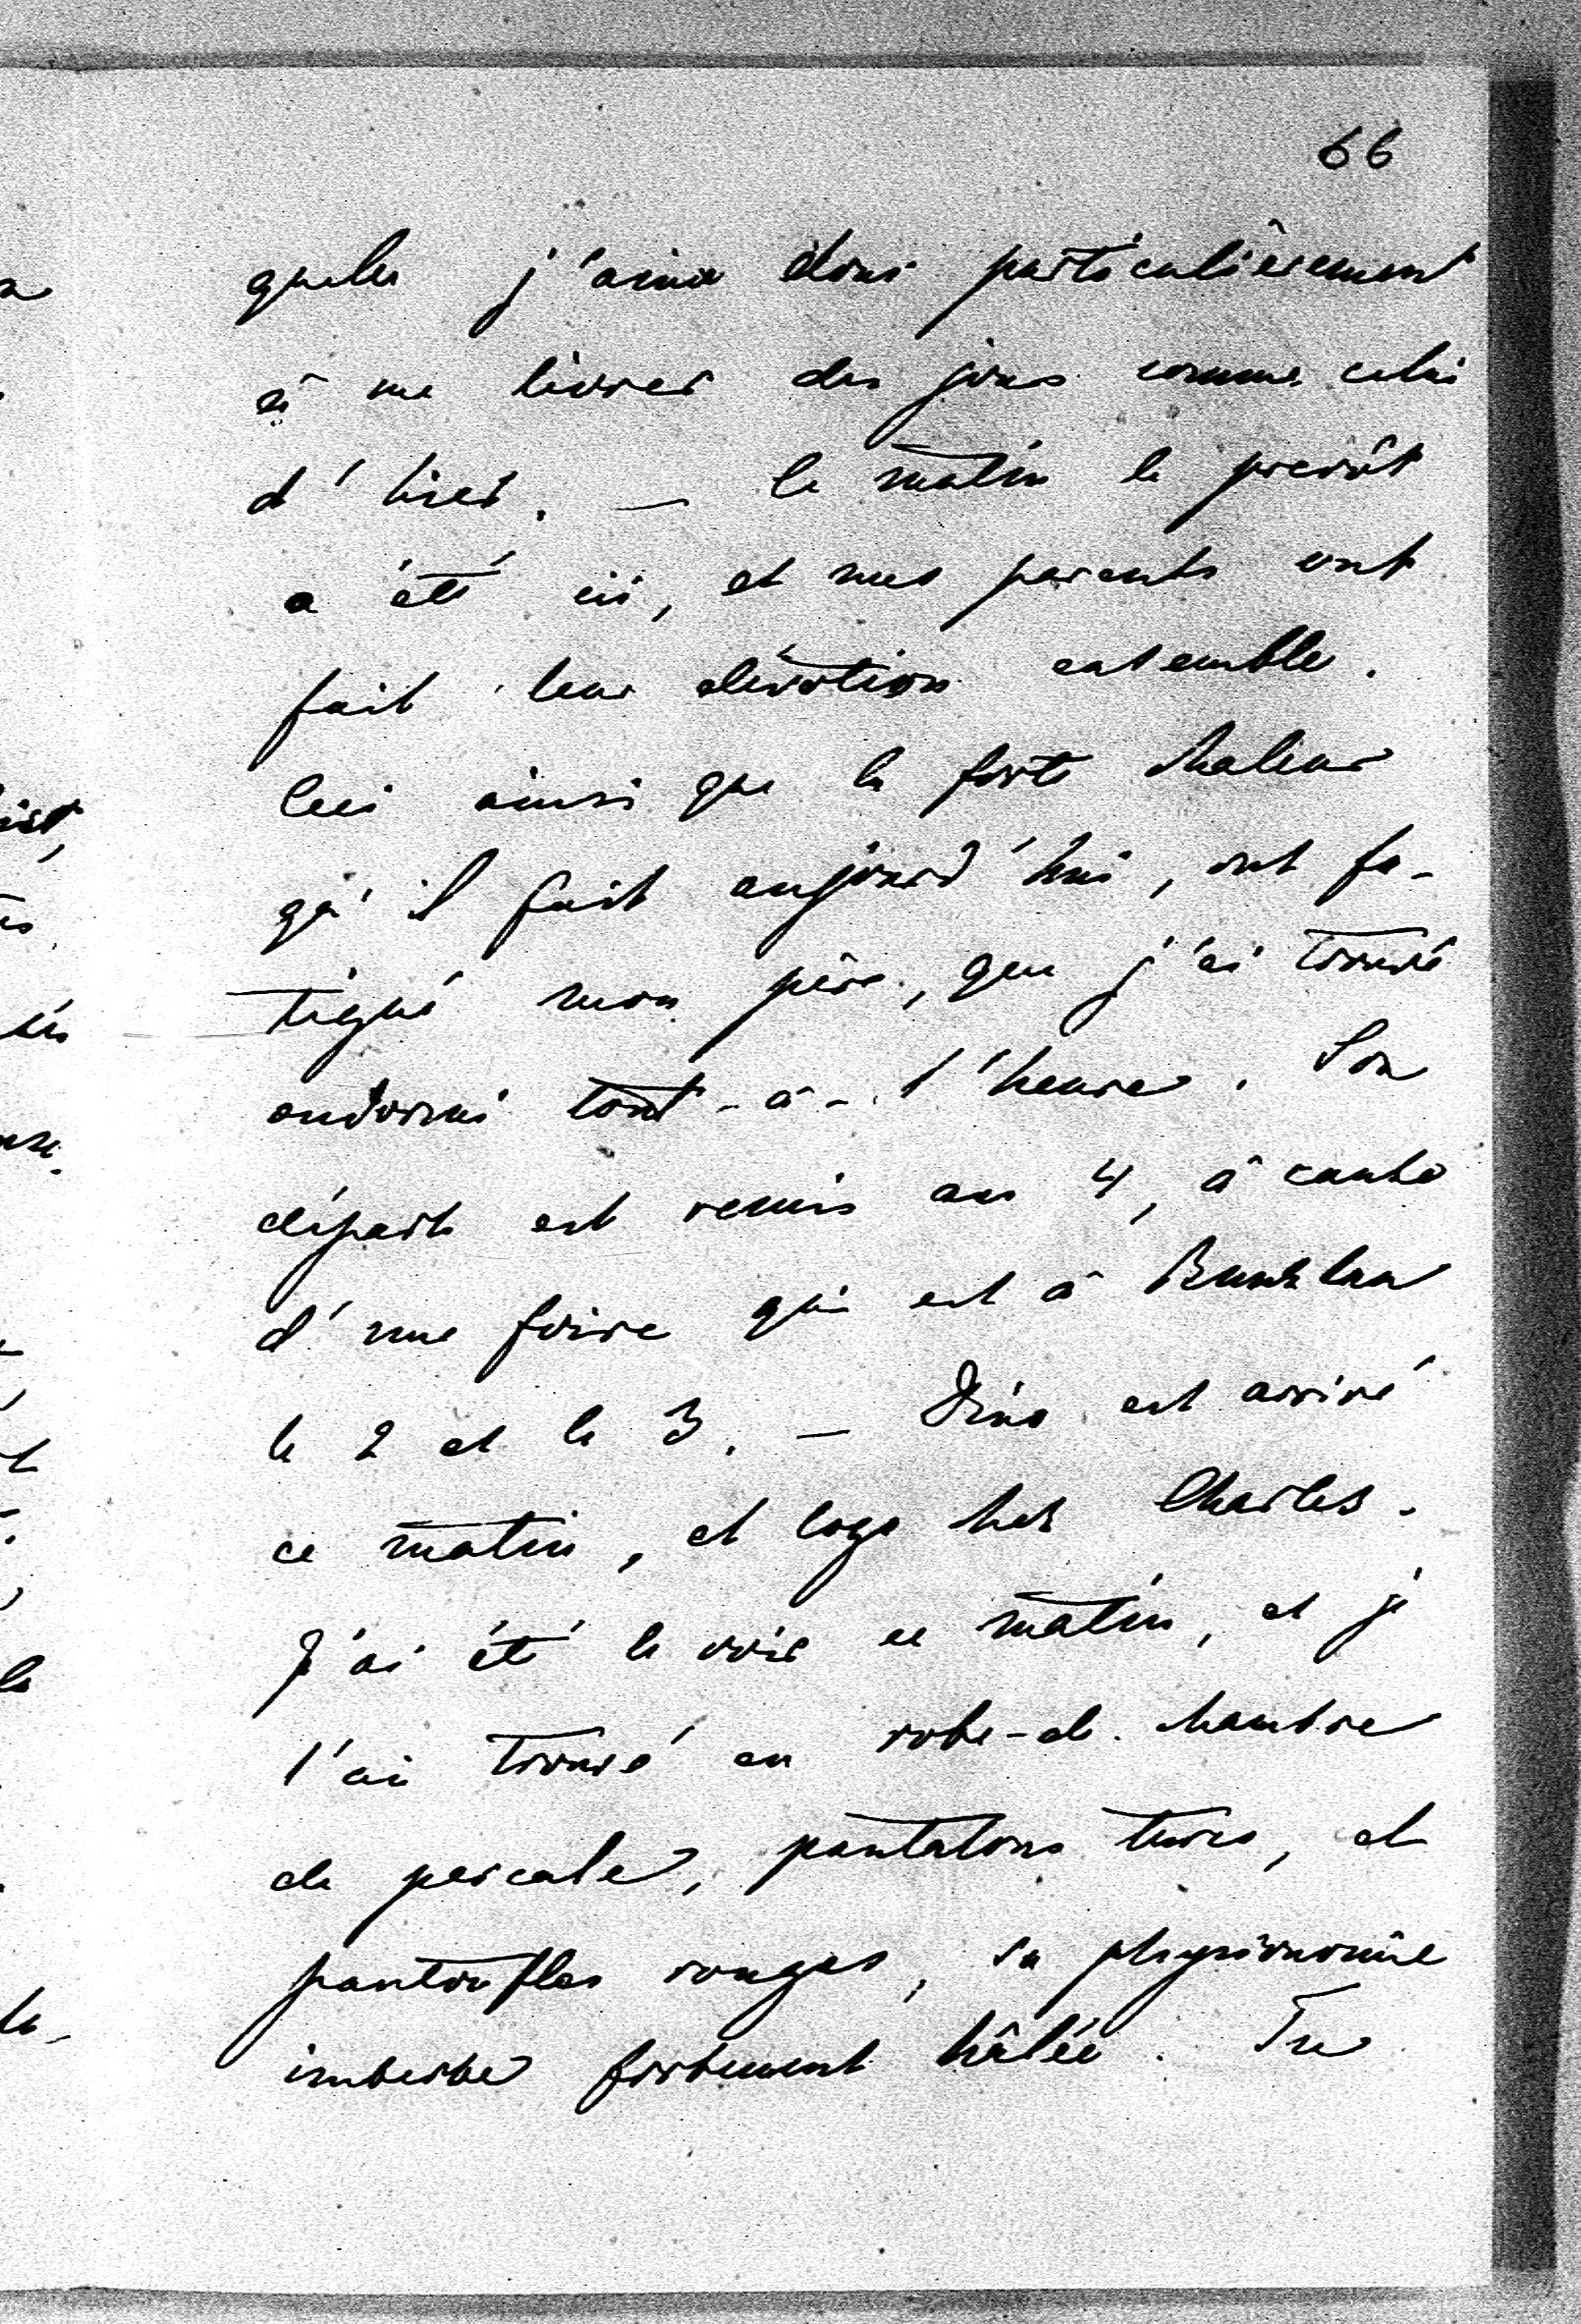 66
quelles j'aime donc particulièrement
à me livrer des jours comme celui
d'hier. — Ce matin le prevôt
a été ici, et mes parents ont
fait leur dévotion ensemble.
Ceci ainsi que la forte chaleur
qu'il fait aujourd'hui, ont fa-
tigué mon père, que j'ai trouvé
endormi tout-à-l'heure. Son
départ est remis au 4, à cause
d'une foire qui est à Bunzlau
le 2 et le 3. — Dino est arrivé
ce matin, et loge chez Charles.
J'ai été le voir ce matin, et je
l'ai trouvé en robe-de-chambre
de percale, pantalons turcs, et
pantoufles rouges, sa physionomie
imberbe fortement hâlée. Tu